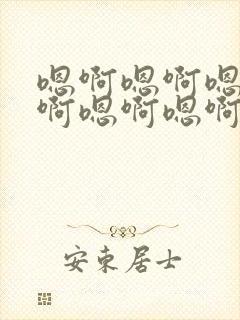 嗯啊嗯啊嗯
啊嗯啊嗯啊
安东居士